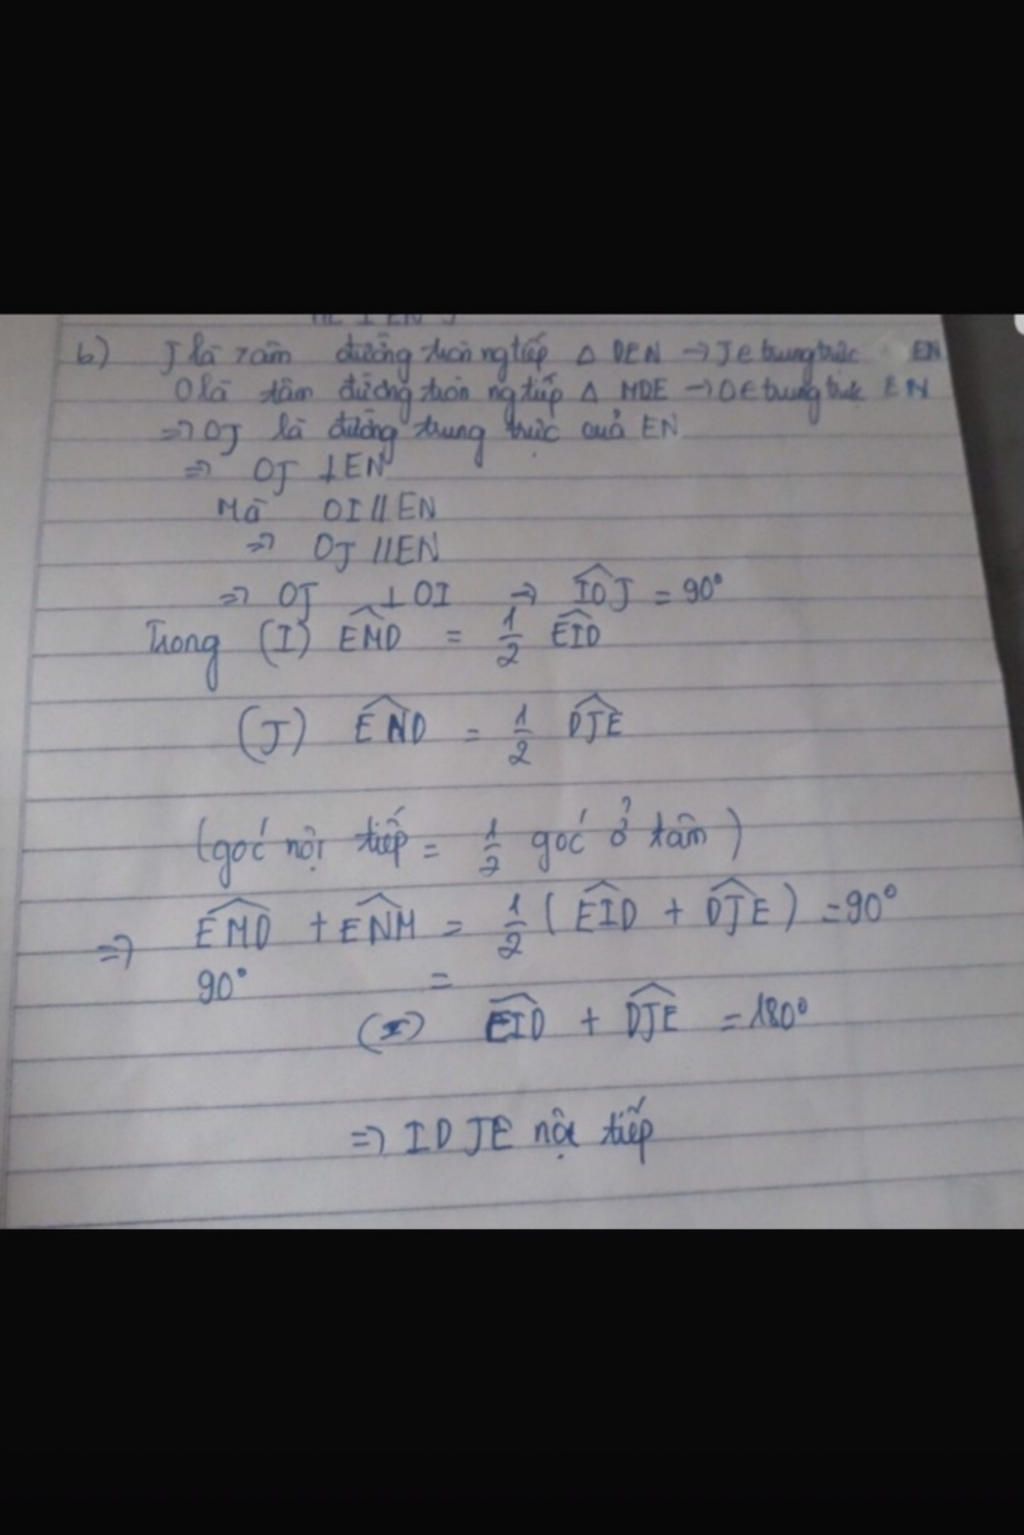 b) J là tâm đường tròn ng tiếp △ DEN → J ∈ trung trực EN
O là tâm đường tròn ng tiếp △ MDE → O ∈ trung trực EN
⇒ OJ là đường trung trực của EN
⇒ OJ ⊥ EN
Mà OI // EN
⇒ OJ // EN
⇒ OJ ⊥ OI → \widehat{IOJ} = 90°
Trong (I) \widehat{EMD} = 1/2 \widehat{EID}
(J) \widehat{END} = 1/2 \widehat{DJE}
(góc nội tiếp = 1/2 góc ở tâm)
⇒ \widehat{EMD} + \widehat{ENM} = 1/2 (\widehat{EID} + \widehat{DJE}) = 90°
90° =
(I) \widehat{EID} + \widehat{DJE} = 180°
⇒ IDJE nội tiếp